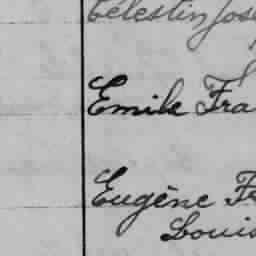 Célestin Jose
Emile Fra
Eugène Fr
Louis